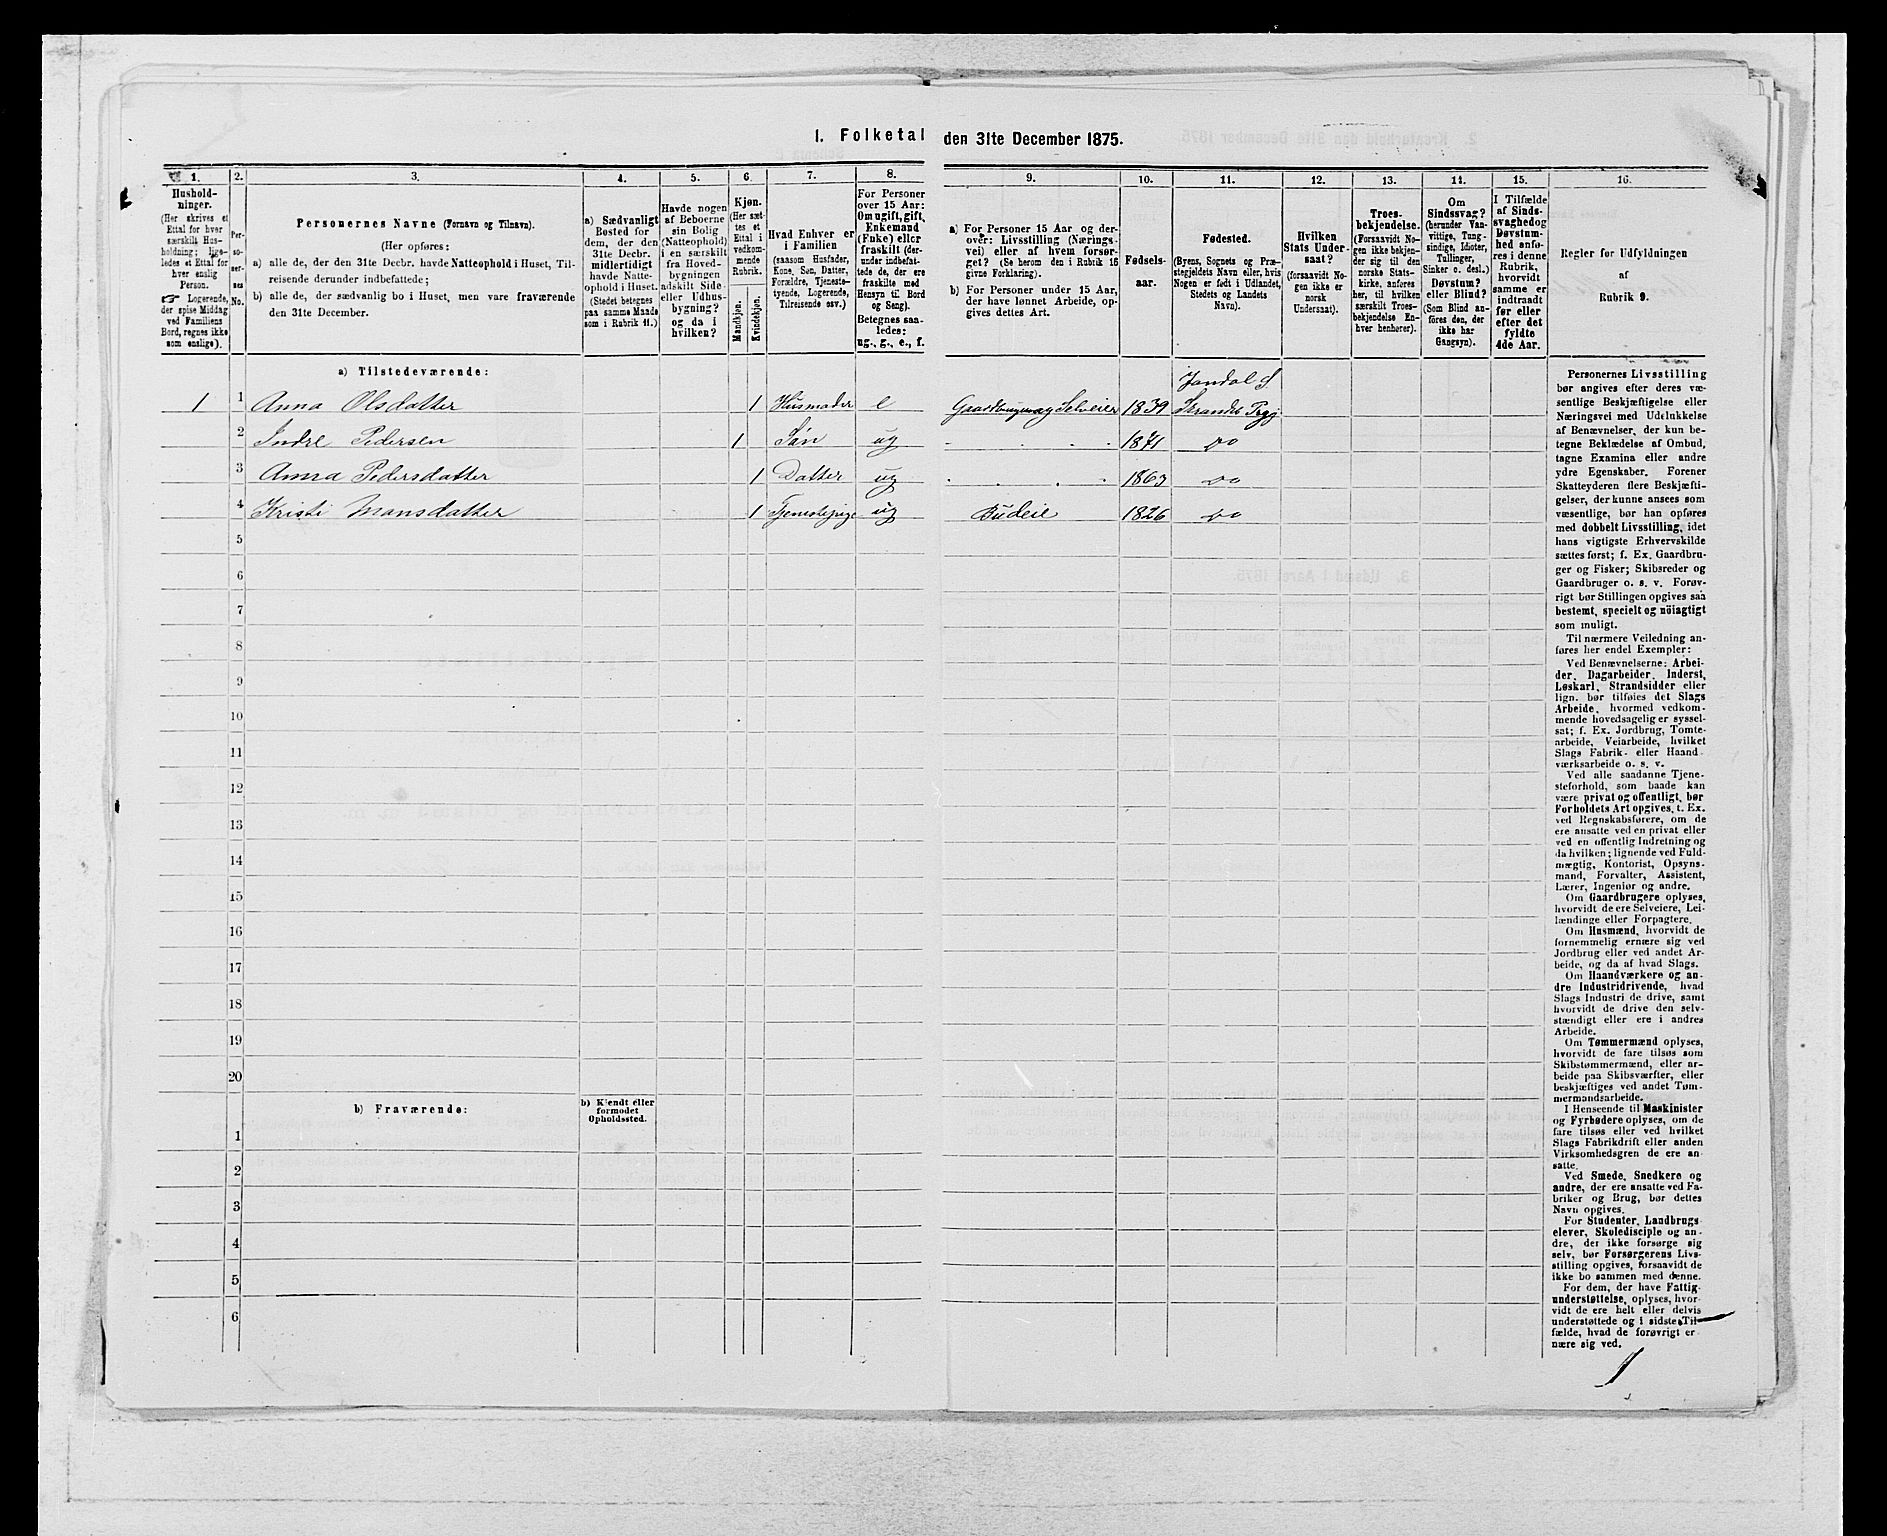 1. Folketal den 31te December 1875.
1. 2. 3. 4. 5. 6. 7. 8. 9. 10. 11. 12. 13. 14. 15. 16.
Hushold-
ninger.
(Her skrives et
Ettal for hver
særskilt Hus-
holdning; lige-
ledes et Ettal for
hver enslig
Person.
☞ Logerende,
der spise Middag
ved Familiens
Bord, regnes ikke
som enslige).
Per-
so-
ner-
nes
No.
Personernes Navne (Fornavn og Tilnavn).
(Her opføres:
a) alle de, der den 31te Decbr. havde Natteophold i Huset, Til-
reisende derunder indbefattede;
b) alle de, der sædvanlig bo i Huset, men vare fraværende
den 31te December.
a) Sædvanligt
Bosted for
dem, der den
31te Decbr.
midlertidigt
havde Natte-
ophold i Huset.
(Stedet betegnes
paa samme Maade
som i Rubrik 11.)
Havde nogen
af Beboerne
sin Bolig
(Natteophold)
i en særskilt
fra Hoved-
bygningen
adskilt Side-
eller Udhus-
bygning?
og da i
hvilken?
Kjøn.
(Her sæt-
tes et
Ettal i
vedkom-
mende
Rubrik.
Mandkjøn.
Kvindekjøn.
Hvad Enhver er
i Familien
(saasom Husfader,
Kone, Søn, Datter,
Forældre, Tjeneste-
tyende, Logerende,
Tilreisende osv.)
For Personer
over 15 Aar:
Om ugift, gift,
Enkemand
(Enke) eller
fraskilt (der-
under indbefat-
tede de, der ere
fraskilte med
Hensyn til Bord
og Seng).
Betegnes saa-
ledes:
ug., g., e., f.
a) For Personer 15 Aar og der-
over: Livsstilling (Nærings-
vei) eller af hvem forsør-
get? (Se herom den i Rubrik 16
givne Forklaring).
b) For Personer under 15 Aar,
der have lønnet Arbeide, op-
gives dettes Art.
Fødsels-
aar.
Fødested.
(Byens, Sognets og Præ-
stegjeldets Navn eller, hvis
Nogen er født i Udlandet,
Stedets og Landets
Navn).
Hvilken
Stats Under-
saat?
(forsaavidt No-
gen ikke er
norsk
Undersaat).
Troes-
bekjendelse.
(Forsaavidt No-
gen ikke bekjen-
der sig til den
norske Stats-
kirke, anføres
her, til hvilken
særskilt Troes-
bekjendelse En-
hver henhører).
Om
Sindssvag?
(herunder Van-
vittige, Tung-
sindige, Idioter,
Tullinger,
Sinker o. desl.)
Døvstum?
eller Blind?
(Som Blind an-
føres den, der
ikke har
Gangsyn).
I Tilfælde
af Sinds-
svaghed og
Døvstum-
hed anfø-
res i denne
Rubrik,
hvorvidt
samme er
indtraadt
før eller
efter det
fyldte
4de Aar.
Regler for Udfyldningen
af
Rubrik 9.
a) Tilstedeværende:
Jondal S
1 1 Anna Olsdatter 1 Husmoder e Gaardbruger og Selveier 1839 Strandeb Prgj
2 Indre Pedersen 1 Søn ug 1871 do
3 Anna Pedersdatter 1 Datter ug 1863 do
4 Kristi Monsdatter 1 Tjenestepige ug Budeie 1826 do
5
6
7
8
9
10
11
12
13
14
15
16
17
18
19
20
b) Fraværende:
b) Kjendt eller
formodet
Opholdssted.
1
2
3
4
5
6
Personernes Livsstilling
bør angives efter deres væ-
sentlige Beskjæftigelse eller
Næringsvei med Udelukkelse
af Benævnelser, der kun be-
tegne Beklædelse af Ombud,
tagne Examina eller andre
ydre Egenskaber. Forener
Skatteyderen flere Beskjæfti-
gelser, der kunne ansees som
væsentlige, bør han opføres
med dobbelt Livsstilling, idet
hans vigtigste Erhvervskilde
sættes først; f. Ex. Gaardbru-
ger og Fisker; Skibsreder og
Gaardbruger o. s. v. Forøv-
rigt bør Stillingen opgives saa
bestemt, specielt og nöiagtigt
som muligt.
Til nærmere Veiledning an-
føres her endel Exempler:
Ved Benævnelserne: Arbei-
der, Dagarbeider, Inderst,
Løskarl, Strandsidder eller
lign. bør tilføies det Slags
Arbeide, hvormed vedkom-
mende hovedsagelig er syssel-
sat; f. Ex. Jordbrug, Tomte-
arbeide, Veiarbeide, hvilket
Slags Fabrik- eller Haand-
værksarbeide o. s. v.
Ved alle saadanne Tjene-
steforhold, som baade kan
være privat og offentligt, bør
Forholdets Art opgives, t. Ex.
ved Regnskabsførere, om de
ere ansatte ved en privat eller
ved en offentlig Indretning og
da hvilken; lignende ved Fuld-
mægtig, Kontorist, Opsyns-
mand, Forvalter, Assistent,
Lærer, Ingeniør og andre.
Om Gaardbrugere oplyses,
hvorvidt de ere Selveiere, Lei-
lændinge eller Forpagtere.
Om Husmænd, hvorvidt de
fornemmelig ernære sig ved
Jordbrug eller ved andet Ar-
beide, og da af hvad Slags.
Om Haandværkere og an-
dre Industridrivende, hvad
Slags Industri de drive, samt
hvorvidt de drive den selv-
stændigt eller ere i andres
Arbeide.
Om Tømmermænd oplyses,
hvorvidt de fare tilsøs som
Skibstømmermænd, eller ar-
beide paa Skibsværfter, eller
beskjæftiges ved andet Tøm-
mermandsarbeide.
I Henseende til Maskinister
og Fyrbødere oplyses, om de
fare tilsøs eller ved hvilket
Slags Fabrikdrift eller anden
Virksomhedsgren de ere an-
satte.
Ved Smede, Snedkere og
andre, der ere ansatte ved Fa-
briker og Brug, bør dettes
Navn opgives.
For Studenter, Landbrugs-
elever, Skoledisciple og an-
dre, der ikke forsørge sig
selv, bør Forsørgerens Livs-
stilling opgives, forsaavidt de
ikke bo sammen med denne.
For dem, der have Fattig-
understøttelse, oplyses, hvor-
vidt de ere helt eller delvis
understøttede og i sidste Til-
fælde, hvad de forøvrigt er-
nære sig ved.